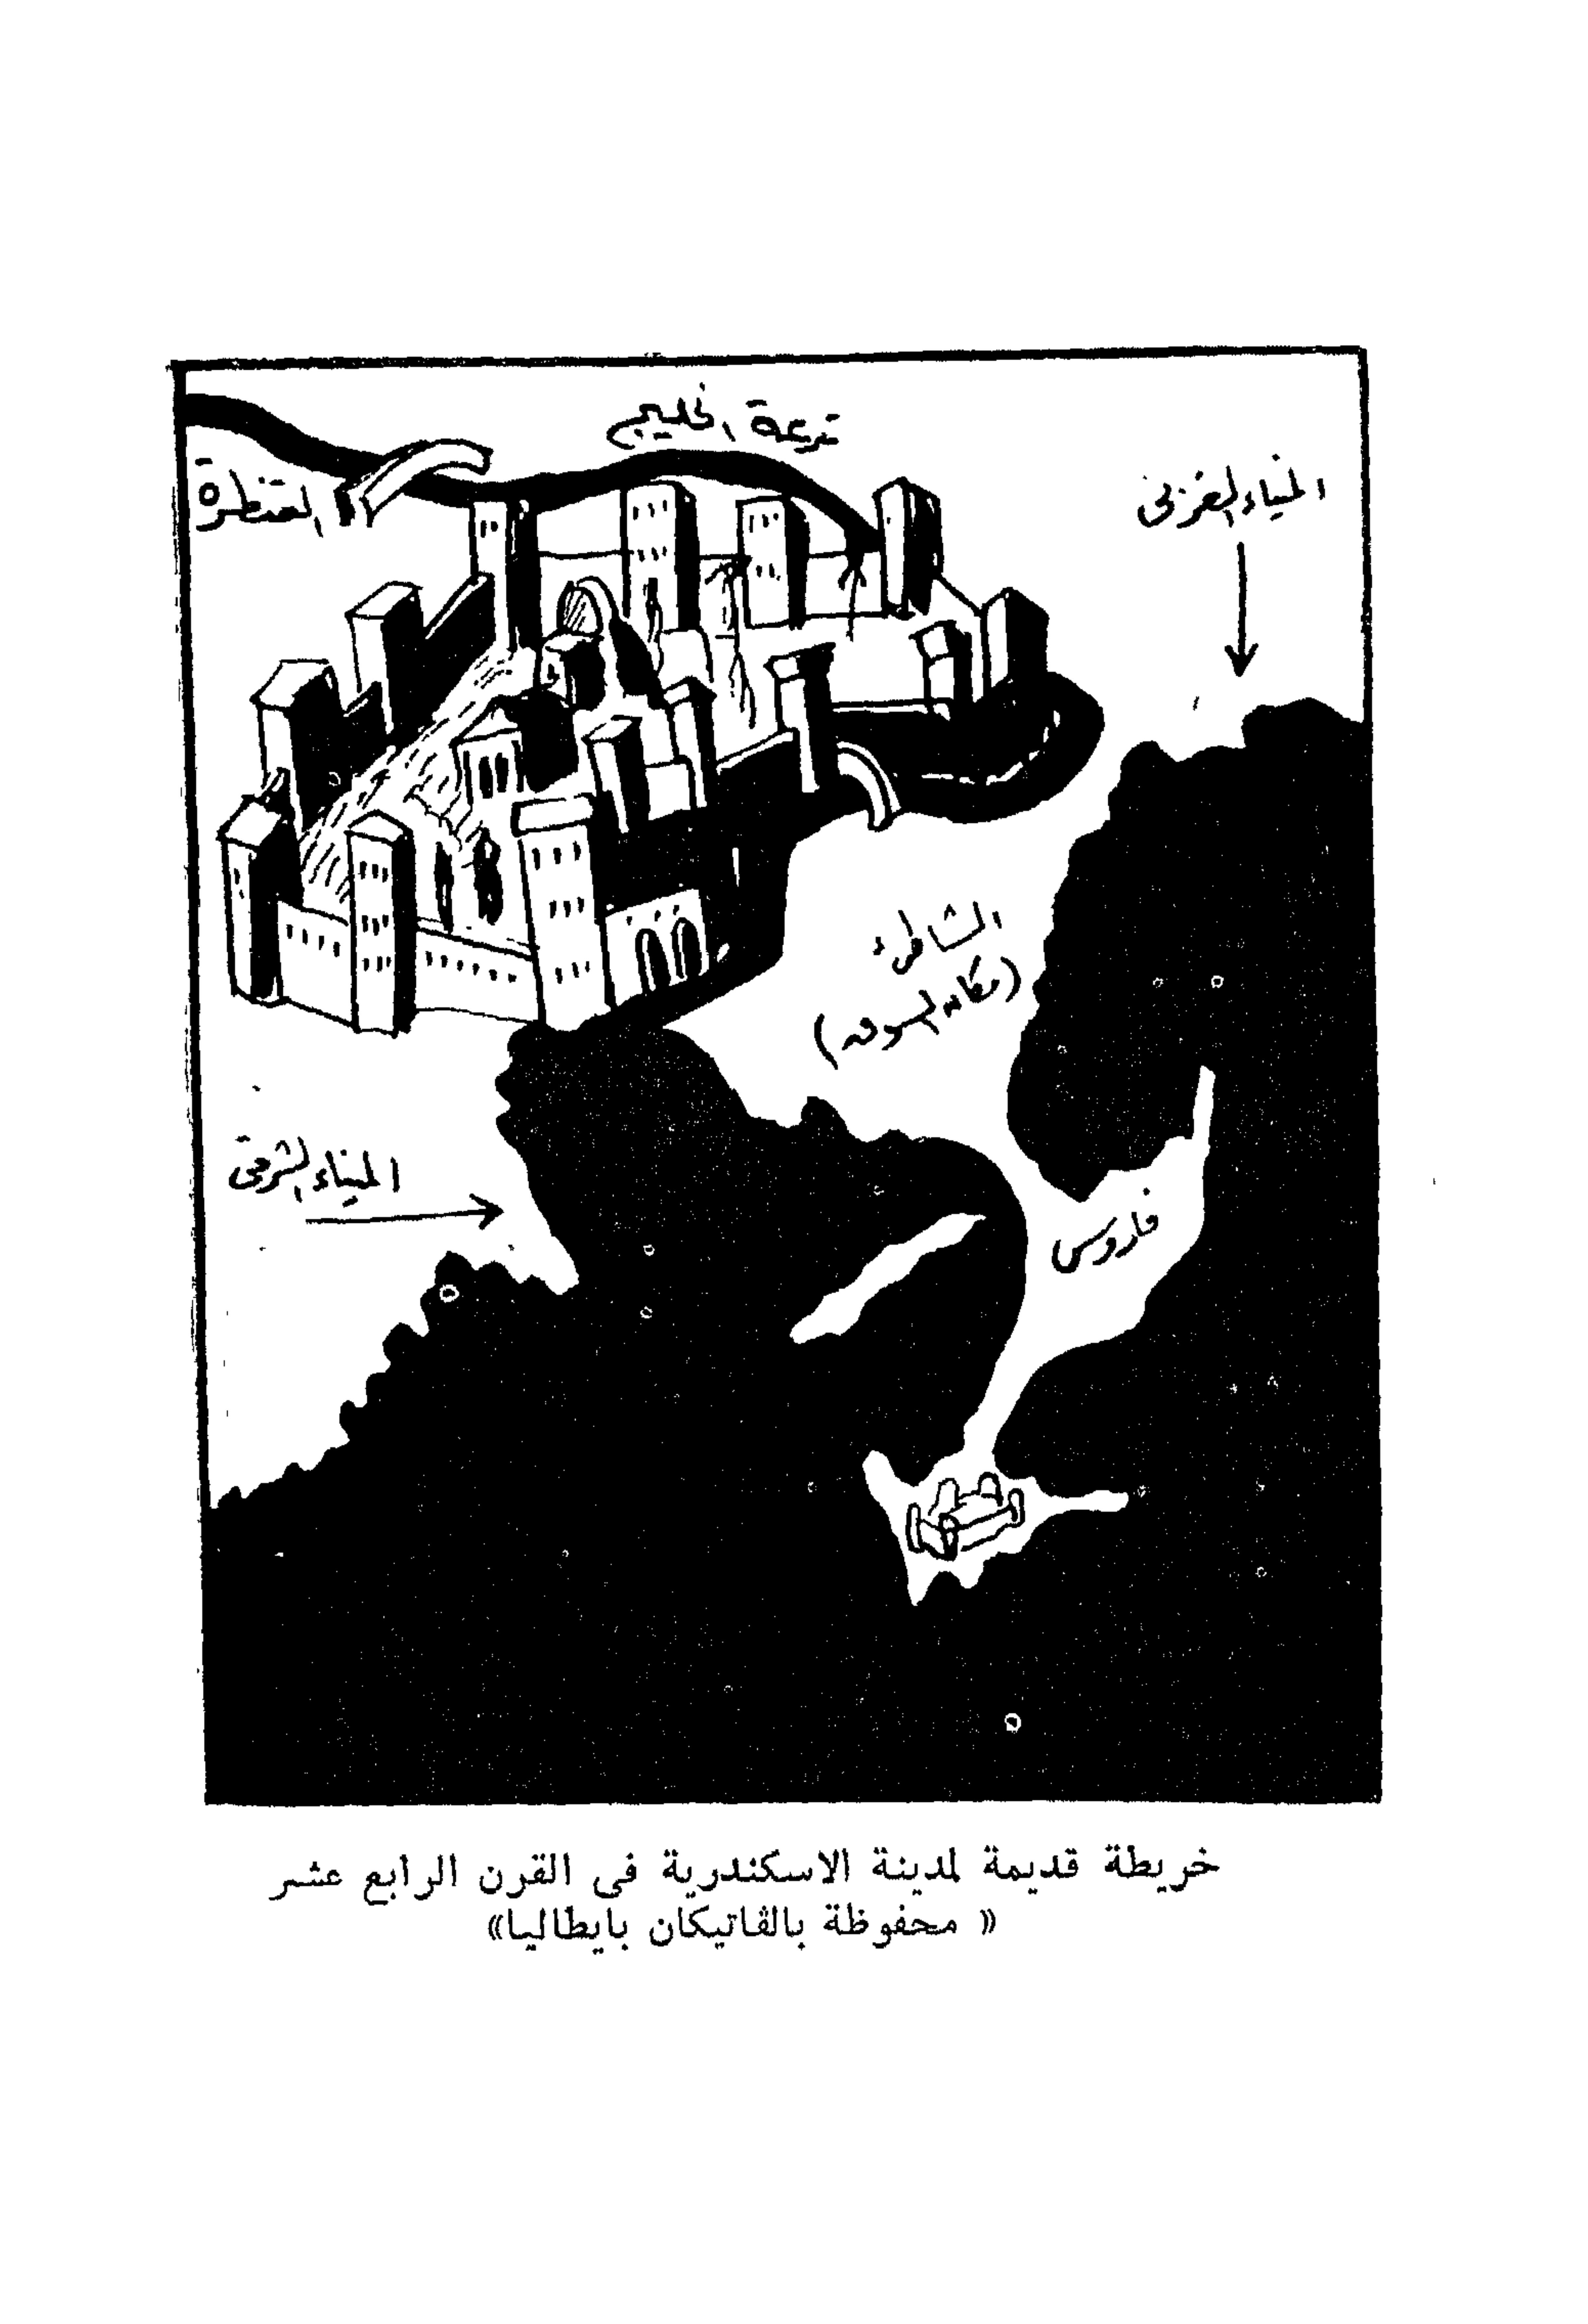 ترعة الخليج
القنطرة
الميناء الغربى
الشاطىء
(مكان السوق)
الميناء الشرقى
فاروس
خريطة قديمة لمدينة الاسكندرية فى القرن الرابع عشر
« محفوظة بالڤاتيكان بايطاليا»